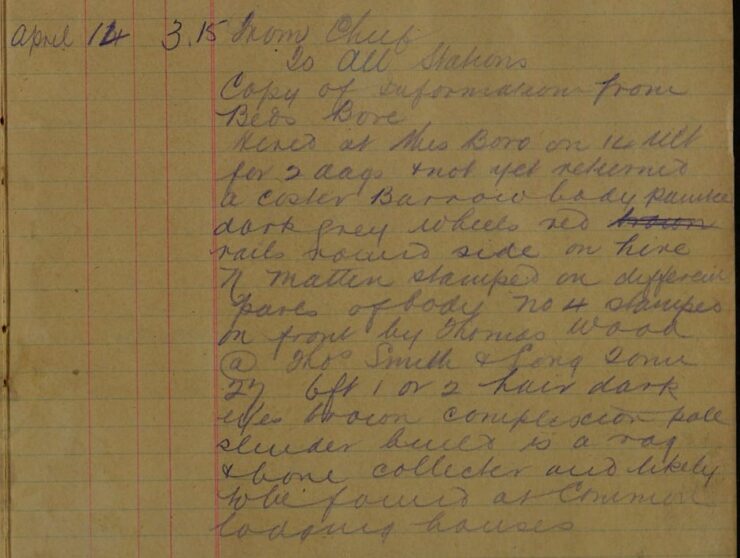 April 14 3.15 From Chief
To All Stations
Copy of Information from
Beds Boro
Hired at this Boro on 14 Ult
for 2 days & not yet returned
a coster Barrow body painted
dark grey wheels red brown
rails round side on hire
N Matten stamped on different
parts of body No 4 stamped
on front by Thomas Wood
@ Thos Smith & Long Tom
27 6ft 1 or 2 hair dark
eyes brown complexion pale
slender build is a rag
& bone collector and likely
to be found at Common
lodging houses